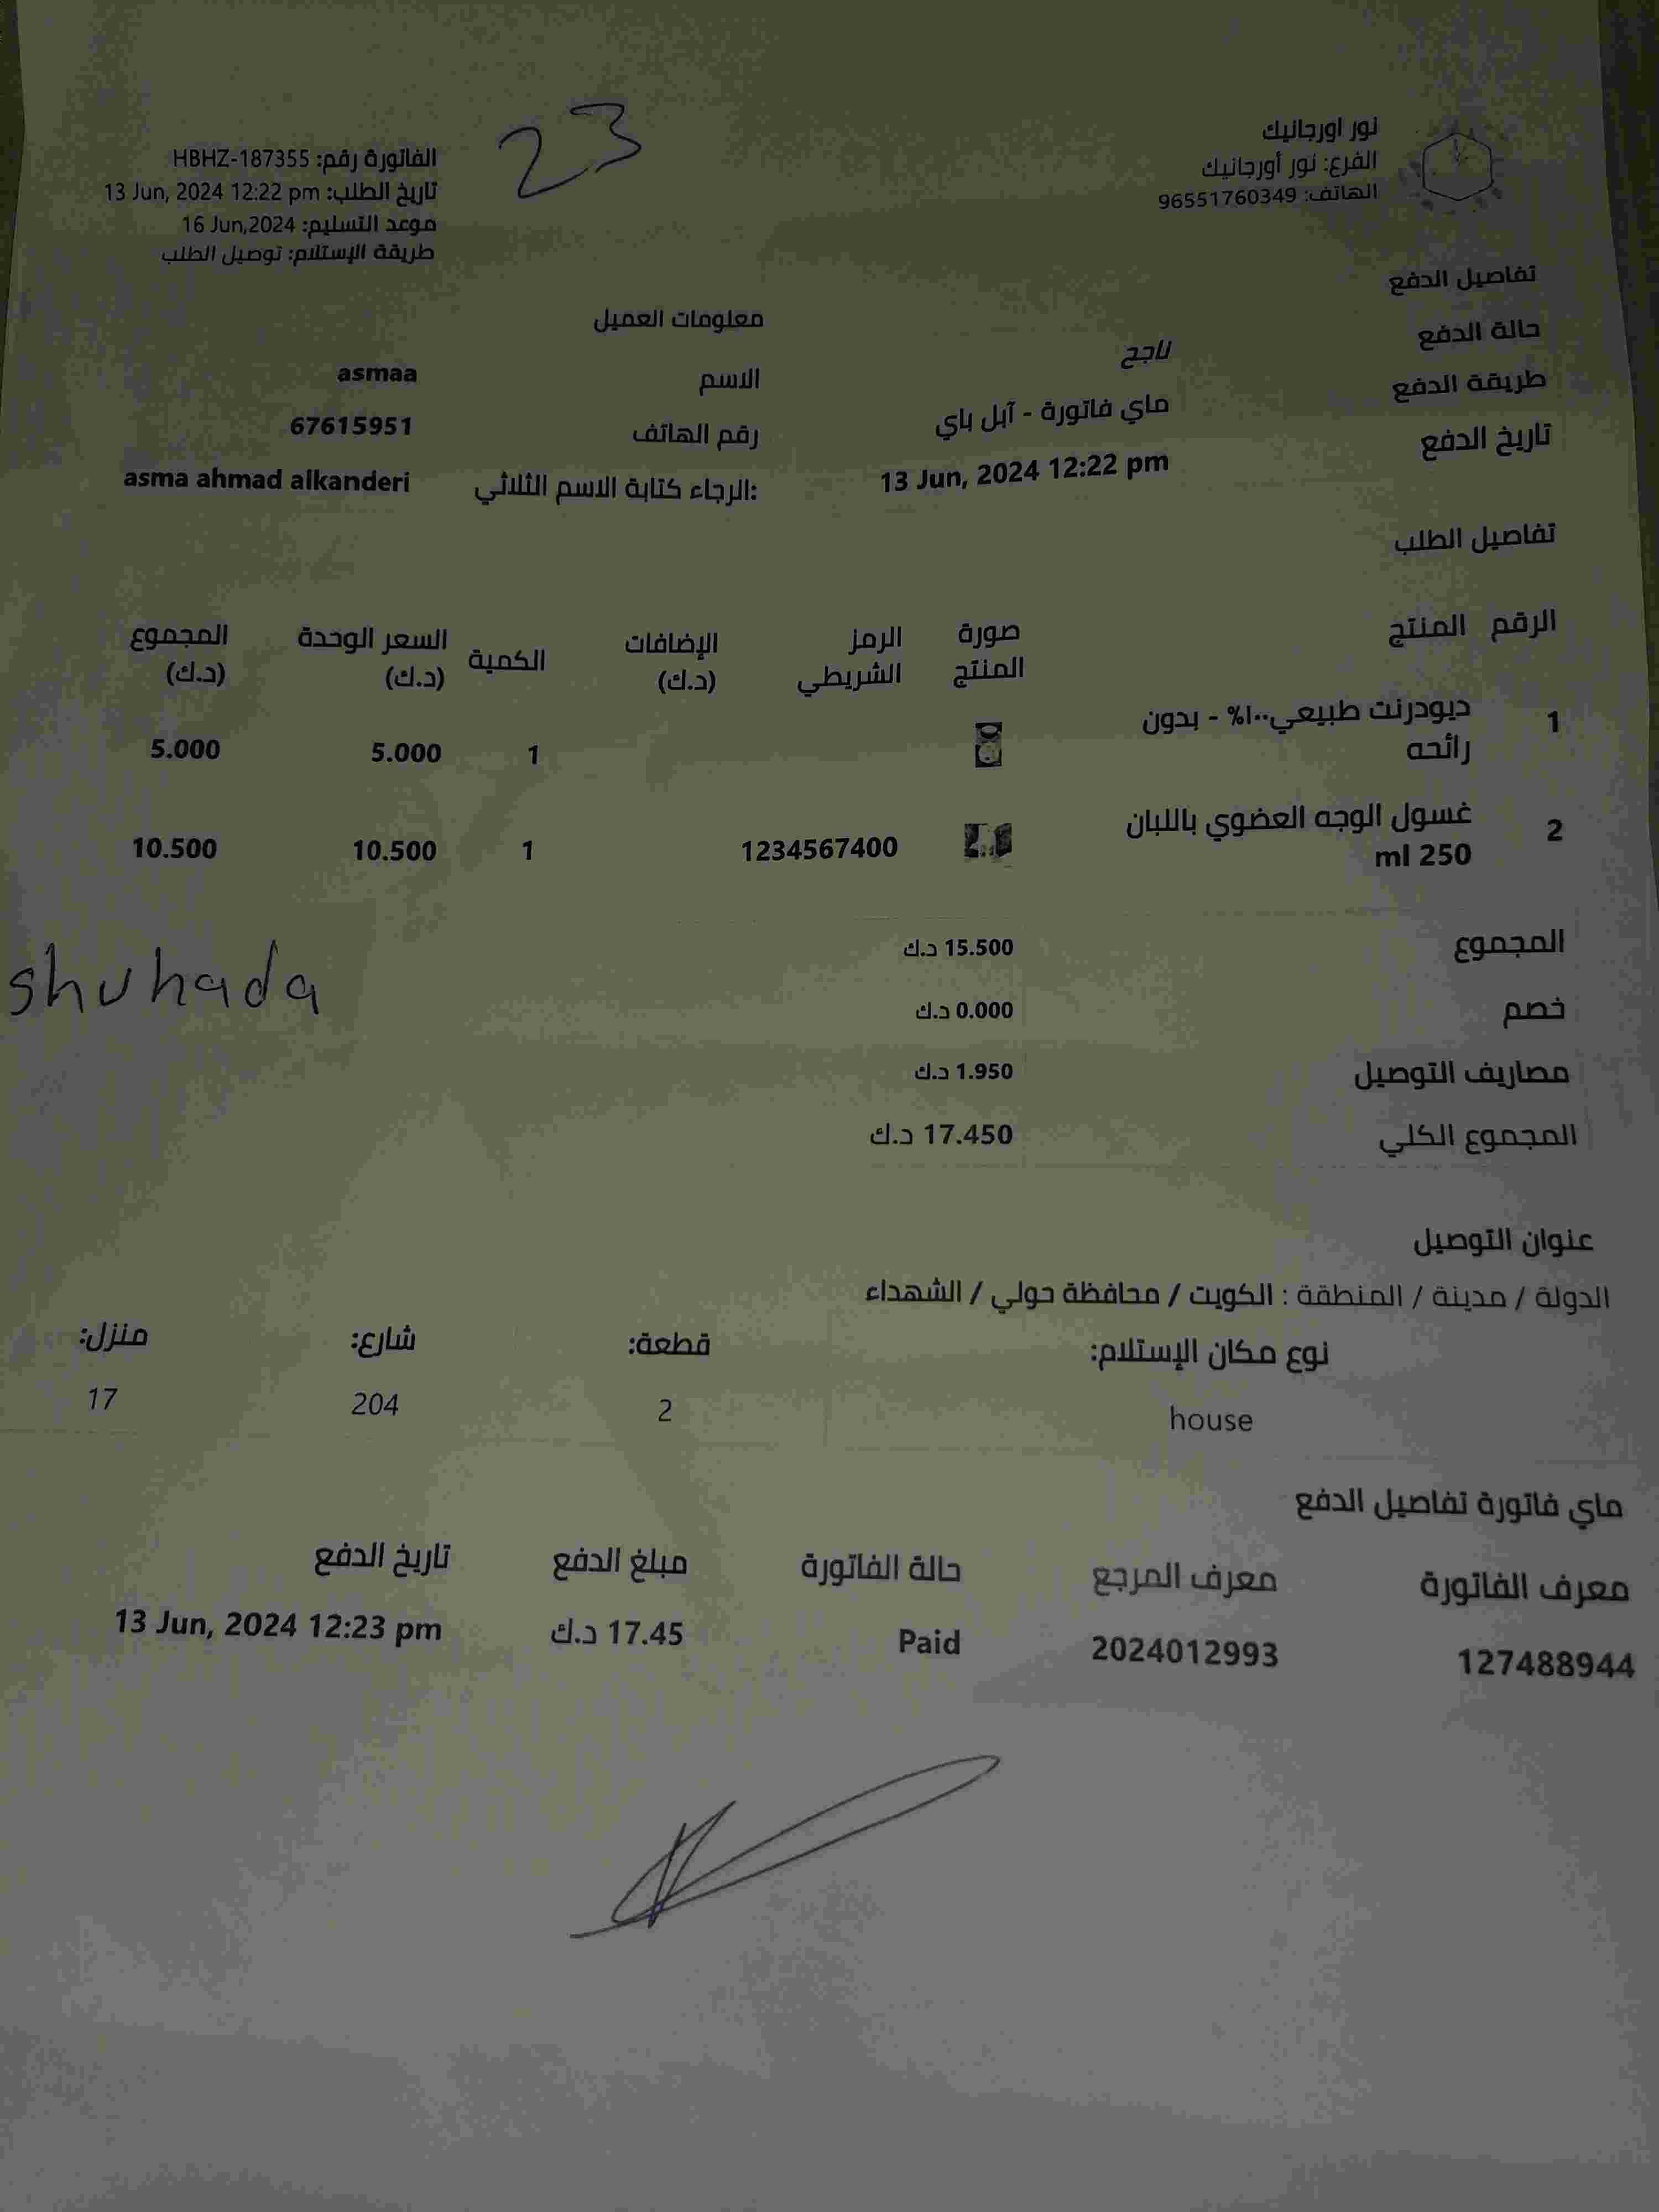 نور اورجانيك
الفرع: نور أورجانيك
الهاتف: 96551760349
23
الفاتورة رقم: HBHZ-187355
تاريخ الطلب: 13 Jun, 2024 12:22 pm
موعد التسليم: 16 Jun,2024
طريقة الإستلام: توصيل الطلب
تفاصيل الدفع
حالة الدفع ناجح
طريقة الدفع ماي فاتورة - آبل باي
تاريخ الدفع 13 Jun, 2024 12:22 pm
معلومات العميل
الاسم asmaa
رقم الهاتف 67615951
:الرجاء كتابة الاسم الثلاثي asma ahmad alkanderi
تفاصيل الطلب
الرقم المنتج صورة المنتج الرمز الشريطي الإضافات (د.ك) الكمية السعر الوحدة (د.ك) المجموع (د.ك)
1 ديودرنت طبيعي١٠٠% - بدون رائحه 1 5.000 5.000
2 غسول الوجه العضوي باللبان 250 ml 1234567400 1 10.500 10.500
المجموع 15.500 د.ك
خصم 0.000 د.ك
مصاريف التوصيل 1.950 د.ك
المجموع الكلي 17.450 د.ك
shuhada
عنوان التوصيل
الدولة / مدينة / المنطقة : الكويت / محافظة حولي / الشهداء
نوع مكان الإستلام: قطعة: شارع: منزل:
house 2 204 17
ماي فاتورة تفاصيل الدفع
معرف الفاتورة معرف المرجع حالة الفاتورة مبلغ الدفع تاريخ الدفع
127488944 2024012993 Paid 17.45 د.ك 13 Jun, 2024 12:23 pm